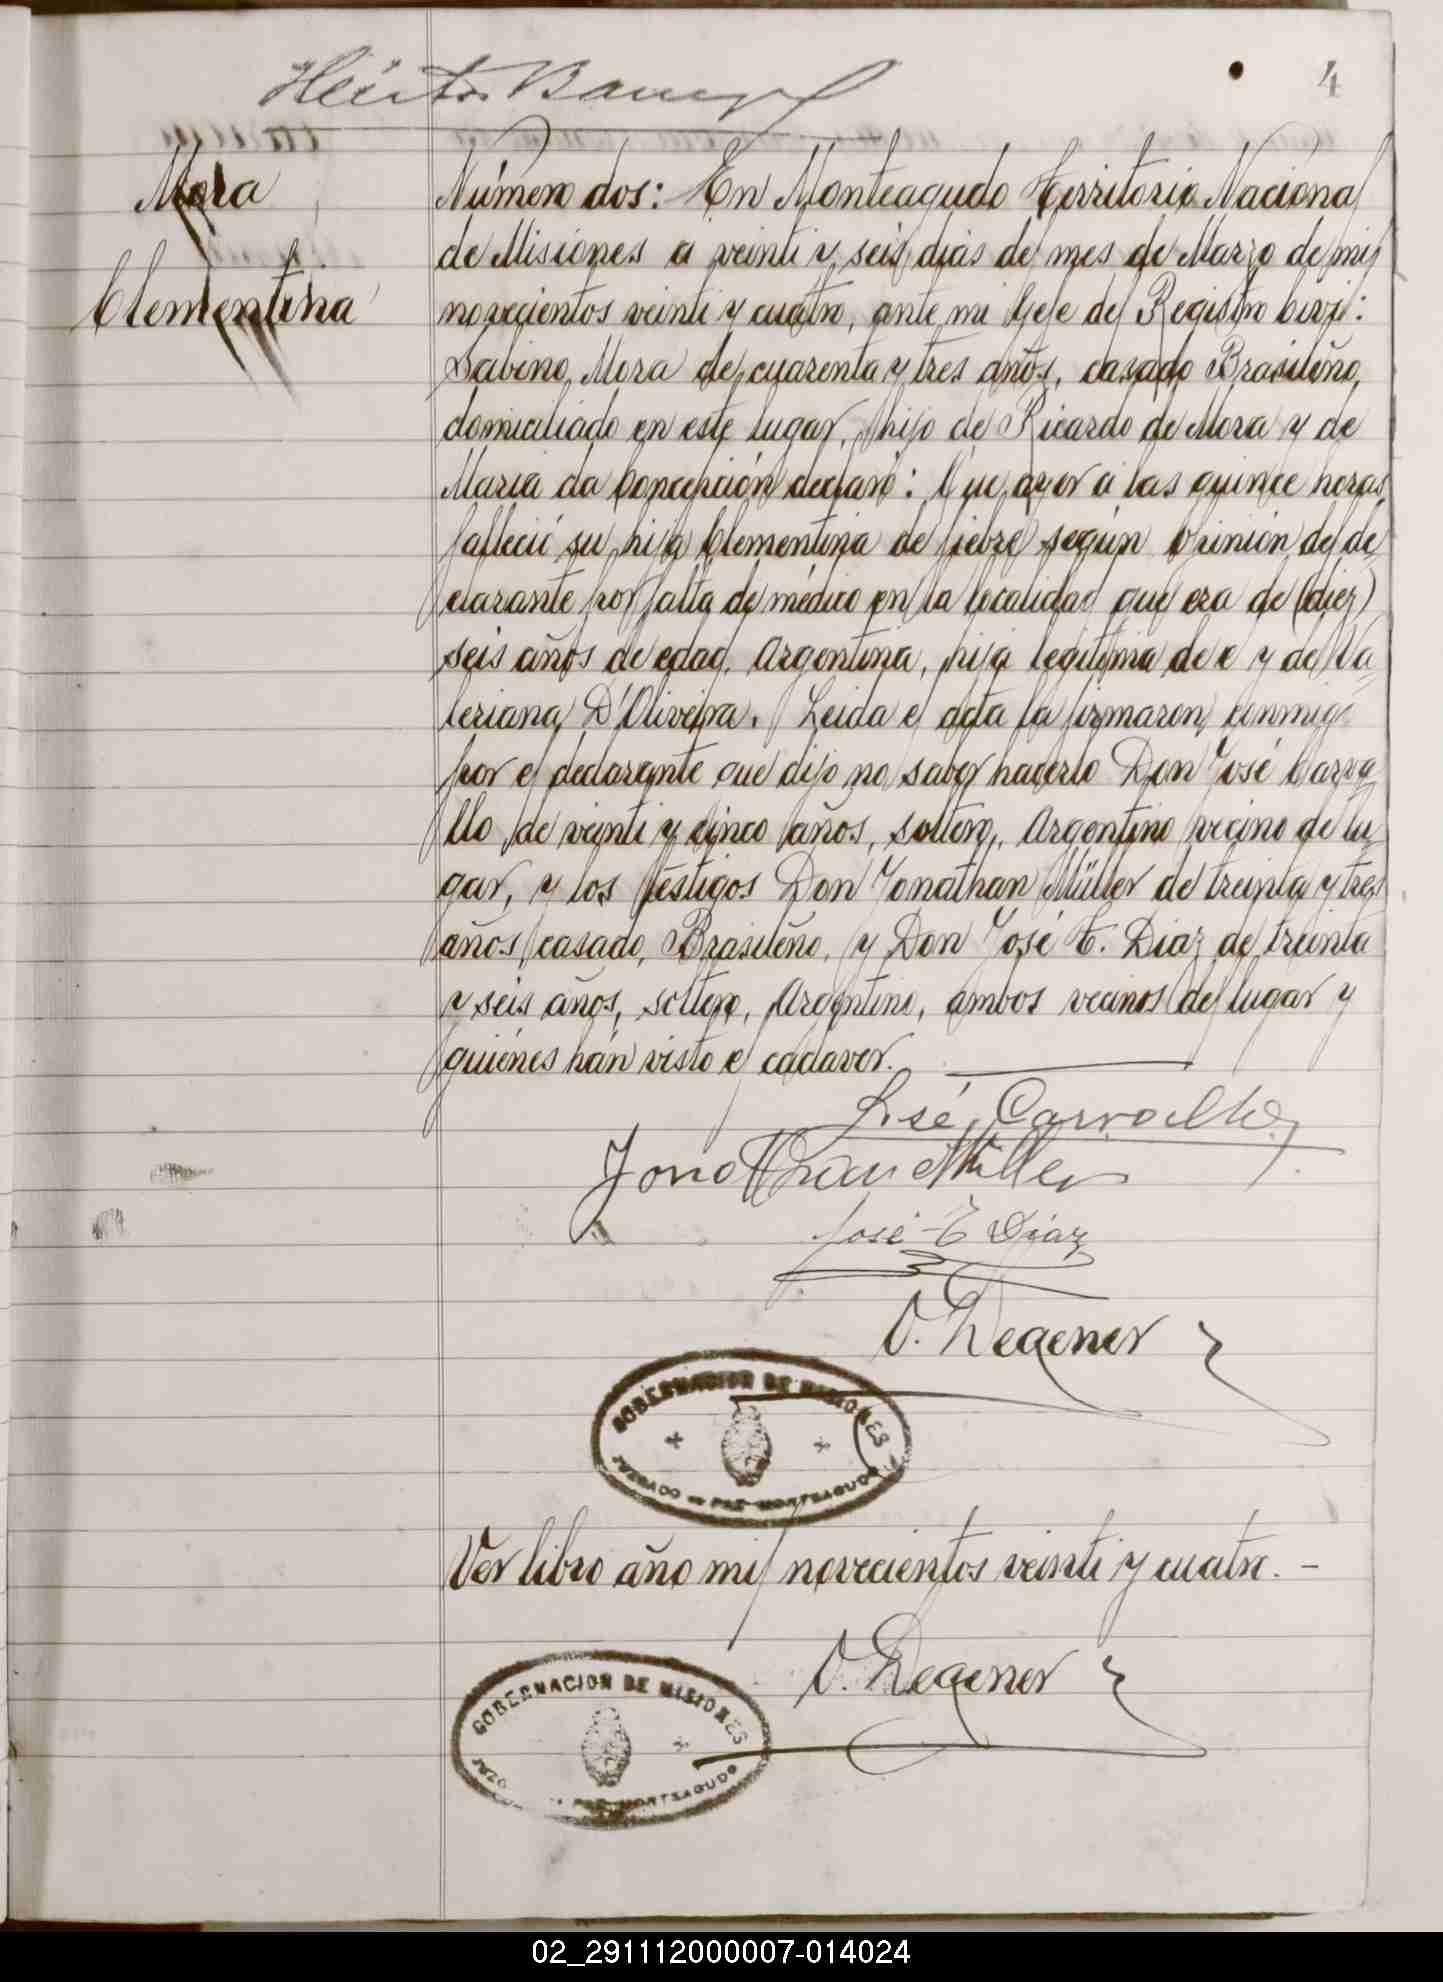 Héctor
4
Mora
Clementina
Número dos: En Monteagudo Territorio Nacional
de Misiones a veinti y seis dias del mes de Marzo de mil
novecientos veinti y cuatro, ante mi Gefe del Registro Civil:
Sabino Mora de cuarenta y tres años, casado Brasileño,
domiciliado en este lugar, hijo de Ricardo de Mora y de
Maria da Concepción declaró: Que ayer á las quince horas
falleció su hija Clementina de fiebre según opinión del de
clarante por falta de médico en la localidad que era de (diez)
seis años de edad, Argentina, hija legitima de el y de Va
leriana D'Oliveira. Leida el acta la firmaron conmigo
por el declarante que dijo no saber hacerlo Don José Carva
llo de veinti y cinco años, soltero, Argentino vecino del lu
gar, y los testigos Don Jonathan Müller de treinta y tres
años casado, Brasileño, y Don José E. Diaz de treinta
y seis años, soltero, Argentino, ambos vecinos del lugar y
quiénes hán visto el cadaver.
José Carvalho
Jonathan Müller
José E Diaz
O. Degener
GOBERNACION DE MISIONES
JUZGADO DE PAZ-MONTEAGUDO
Ver libro año mil novecientos veinti y cuatro. -
O. Degener
GOBERNACION DE MISIONES
PAZ-MONTEAGUDO
02_291112000007-014024